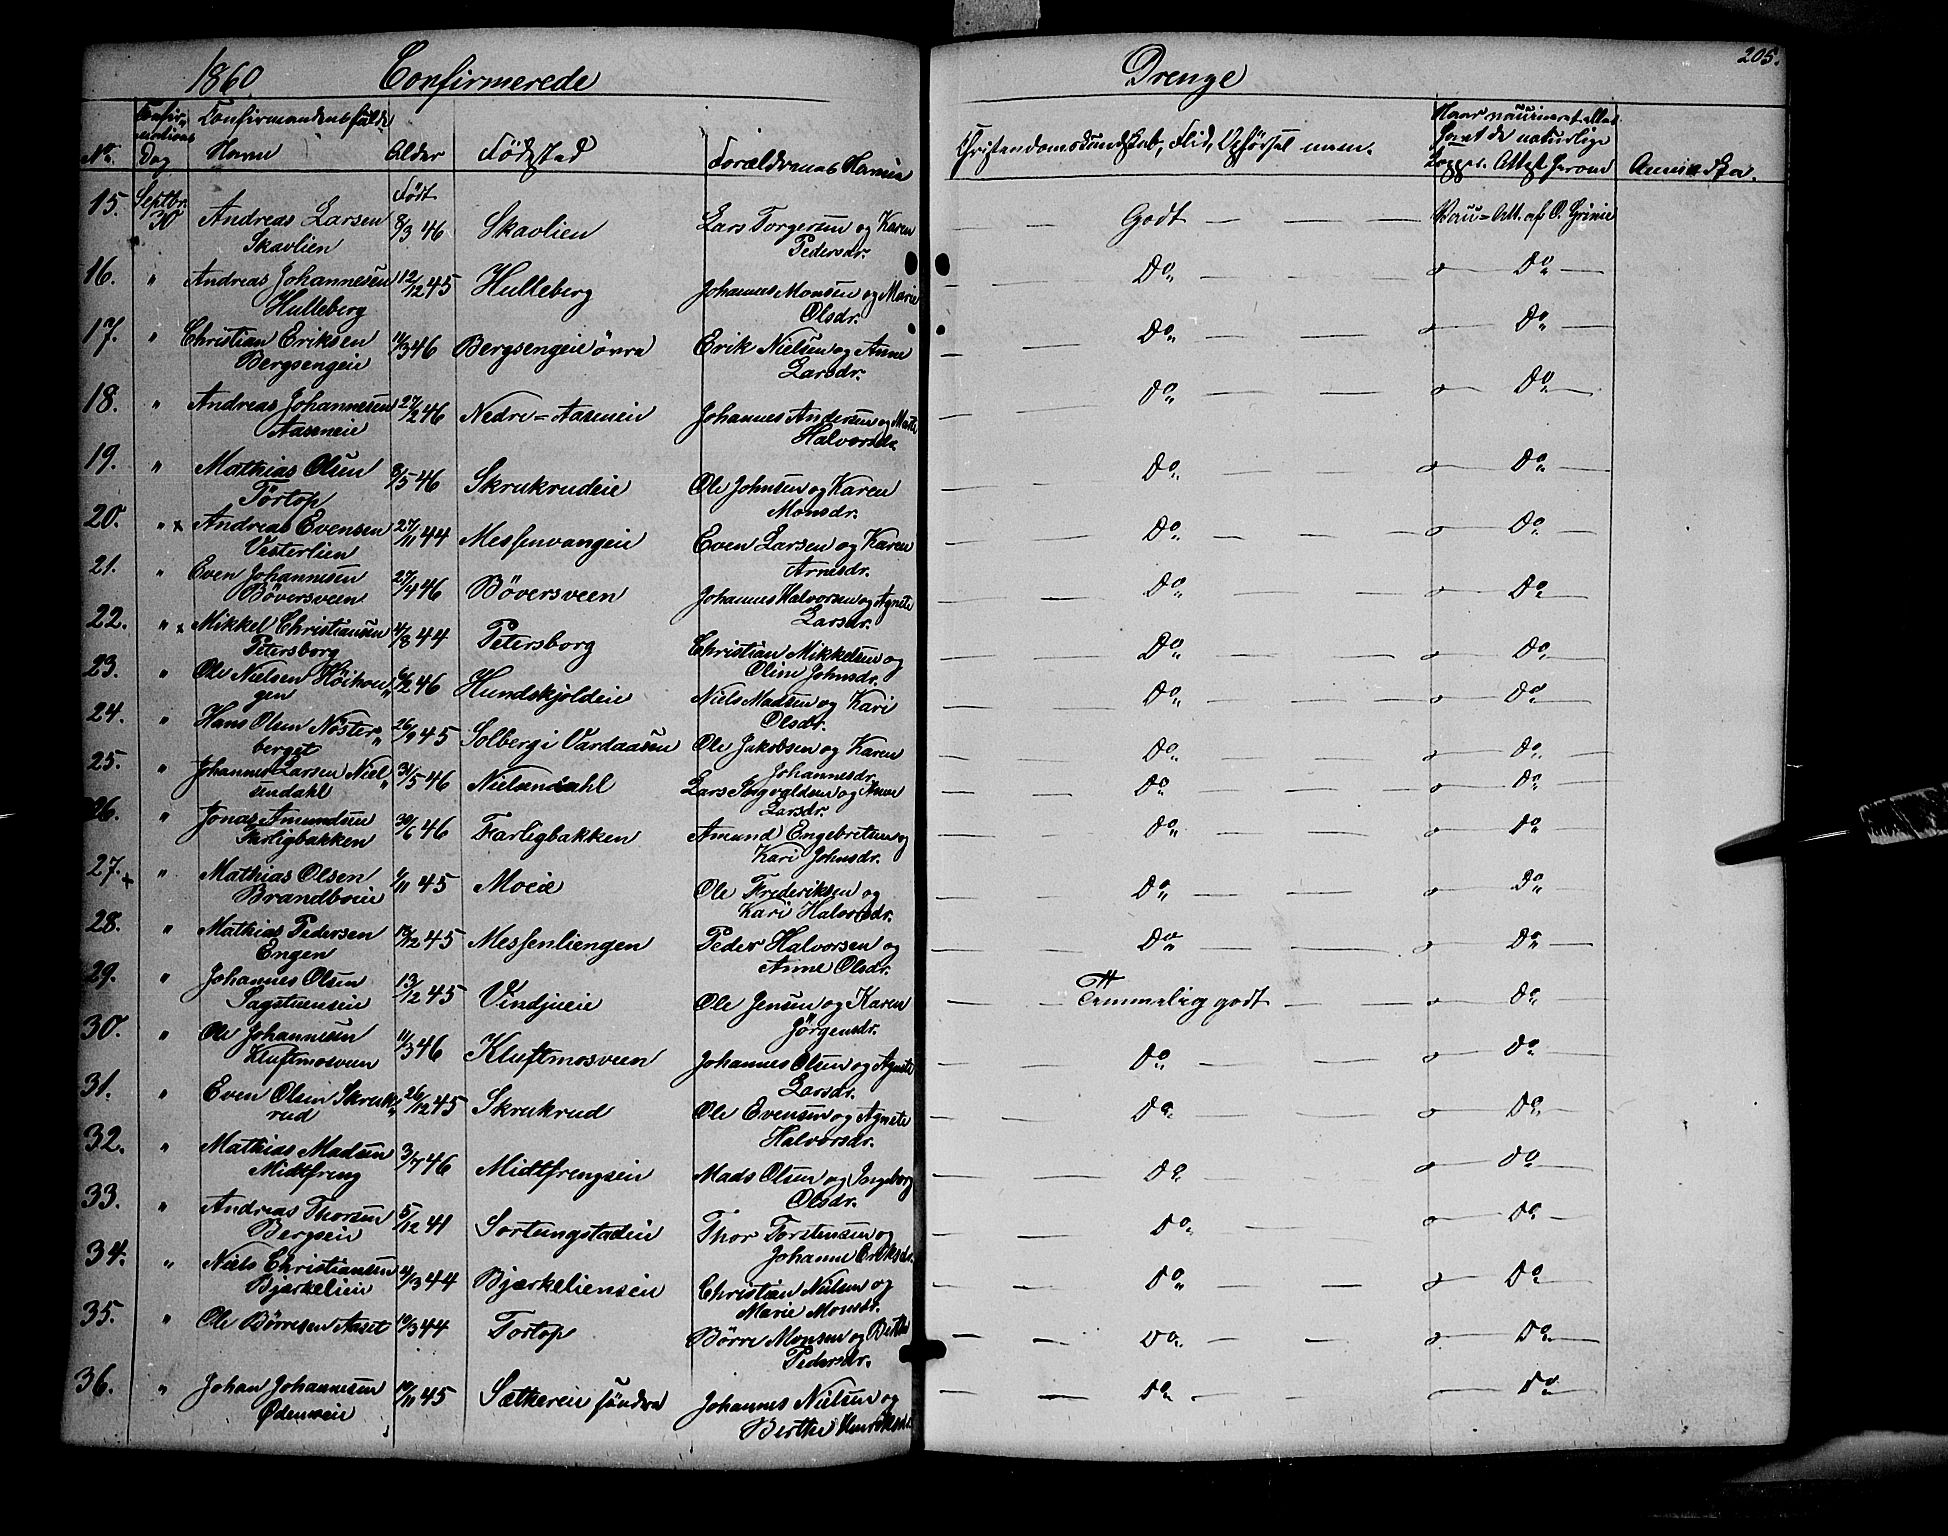 205.
1860. Confirmerede Drenge
No. Confirmations Dag Confirmandens fulde Navn Alder Födested Forældrenes Navne Christendomskundskab, Flid, Opförsel m.m. Anmærk
15. Septbr. 30 Andreas Larsen Født 8/3 46 Skavlien Lars Torgersen og Karen Godt Vac. Att. af O. Grinie
Skavlien Pedersdr.
16. " Andreas Johannesen 12/12 45 Hulleberg Johannes Monsen og Marie Do Do
Hulleberg Olsdr.
17. " Christian Eriksen 11/3 46 Bergsengeie övre Erik Nielsen og Anne Do Do
Bergsengeie Larsdr.
18. " Andreas Johannesen 27/2 46 Nedre=Aaseneie Johannes Andersen og Marte Do Do
Aaseneie Halvorsdr.
19. " Mathias Olsen 8/5 46 Skrukrudeie Ole Johnsen og Karen Do Do
Törtop Monsdr.
20. " x Andreas Evensen 27/11 44 Messenvangeie Even Larsen og Karen Do Do
Vesterlien Arnesdr.
21. " Even Johannesen 27/4 46 Böversveen Johannes Halvorsen og Agnete Do Do
Böversveen Larsdr.
22. " x Mikkel Christiansen 4/8 44 Petersborg Christian Mikkelsen og Do Do
Petersborg Oline Johnsdr.
23. " Ole Nielsen Höihou 6/2 46 Hundskjoldeie Niels Madsen og Kari Do Do
gen Olsdr.
24. " Hans Olsen Nöster 26/9 45 Solberg i Vardaasen Ole Jakobsen og Karen Do Do
berget Johannesdr.
25. " Johannes Larsen Niel 31/5 46 Nielsendahl Lars Ingvaldsen og Anne Do Do
sendahl Larsdr.
26. " Jonas Amundsen 30/6 46 Farligbakken Amund Engebretsen og Do Do
Farligbakken Kari Johnsdr.
27. + " Mathias Olsen 6/11 45 Moeie Ole Frederiksen og Do Do
Brandboeie Kari Halvorsdr.
28. " Mathias Pedersen 12/12 45 Messenliengen Peder Halvorsen og Do Do
Engen Anne Olsdr.
29. " Johannes Olsen 13/12 45 Vindjueie Ole Jensen og Karen Temmelig godt Do
Sagstuenseie Jörgensdr.
30. " Ole Johannesen 11/3 46 Kluftmosveen Johannes Olsen og Agnete Do Do
Kluftmosveen Larsdr.
31. " Even Olsen Skruk 26/12 45 Skrukrud Ole Evensen og Agnete Do Do
rud Halvorsdr.
32. " Mathias Madsen 3/7 46 Midtfrengseie Mads Olsen og Ingeborg Do Do
Midtfreng Olsdr.
33. " Andreas Thorsen 5/12 41 Sortungstadeie Thor Torstensen og Do Do
Bergseie Johanne Eriksdr.
34. " Niels Christiansen 4/3 44 Bjærkelienseie Christian Nielsen og Do Do
Bjærkelien Marie Monsdr.
35. " Ole Börresen Aaset 19/3 44 Tortop Börre Monsen og Berthe Do Do
Pedersdr.
36. " Johan Johannesen 19/11 45 Sæthereie söndre Johannes Nielsen og Do Do
Ödenseie Berthe Henriksdr.